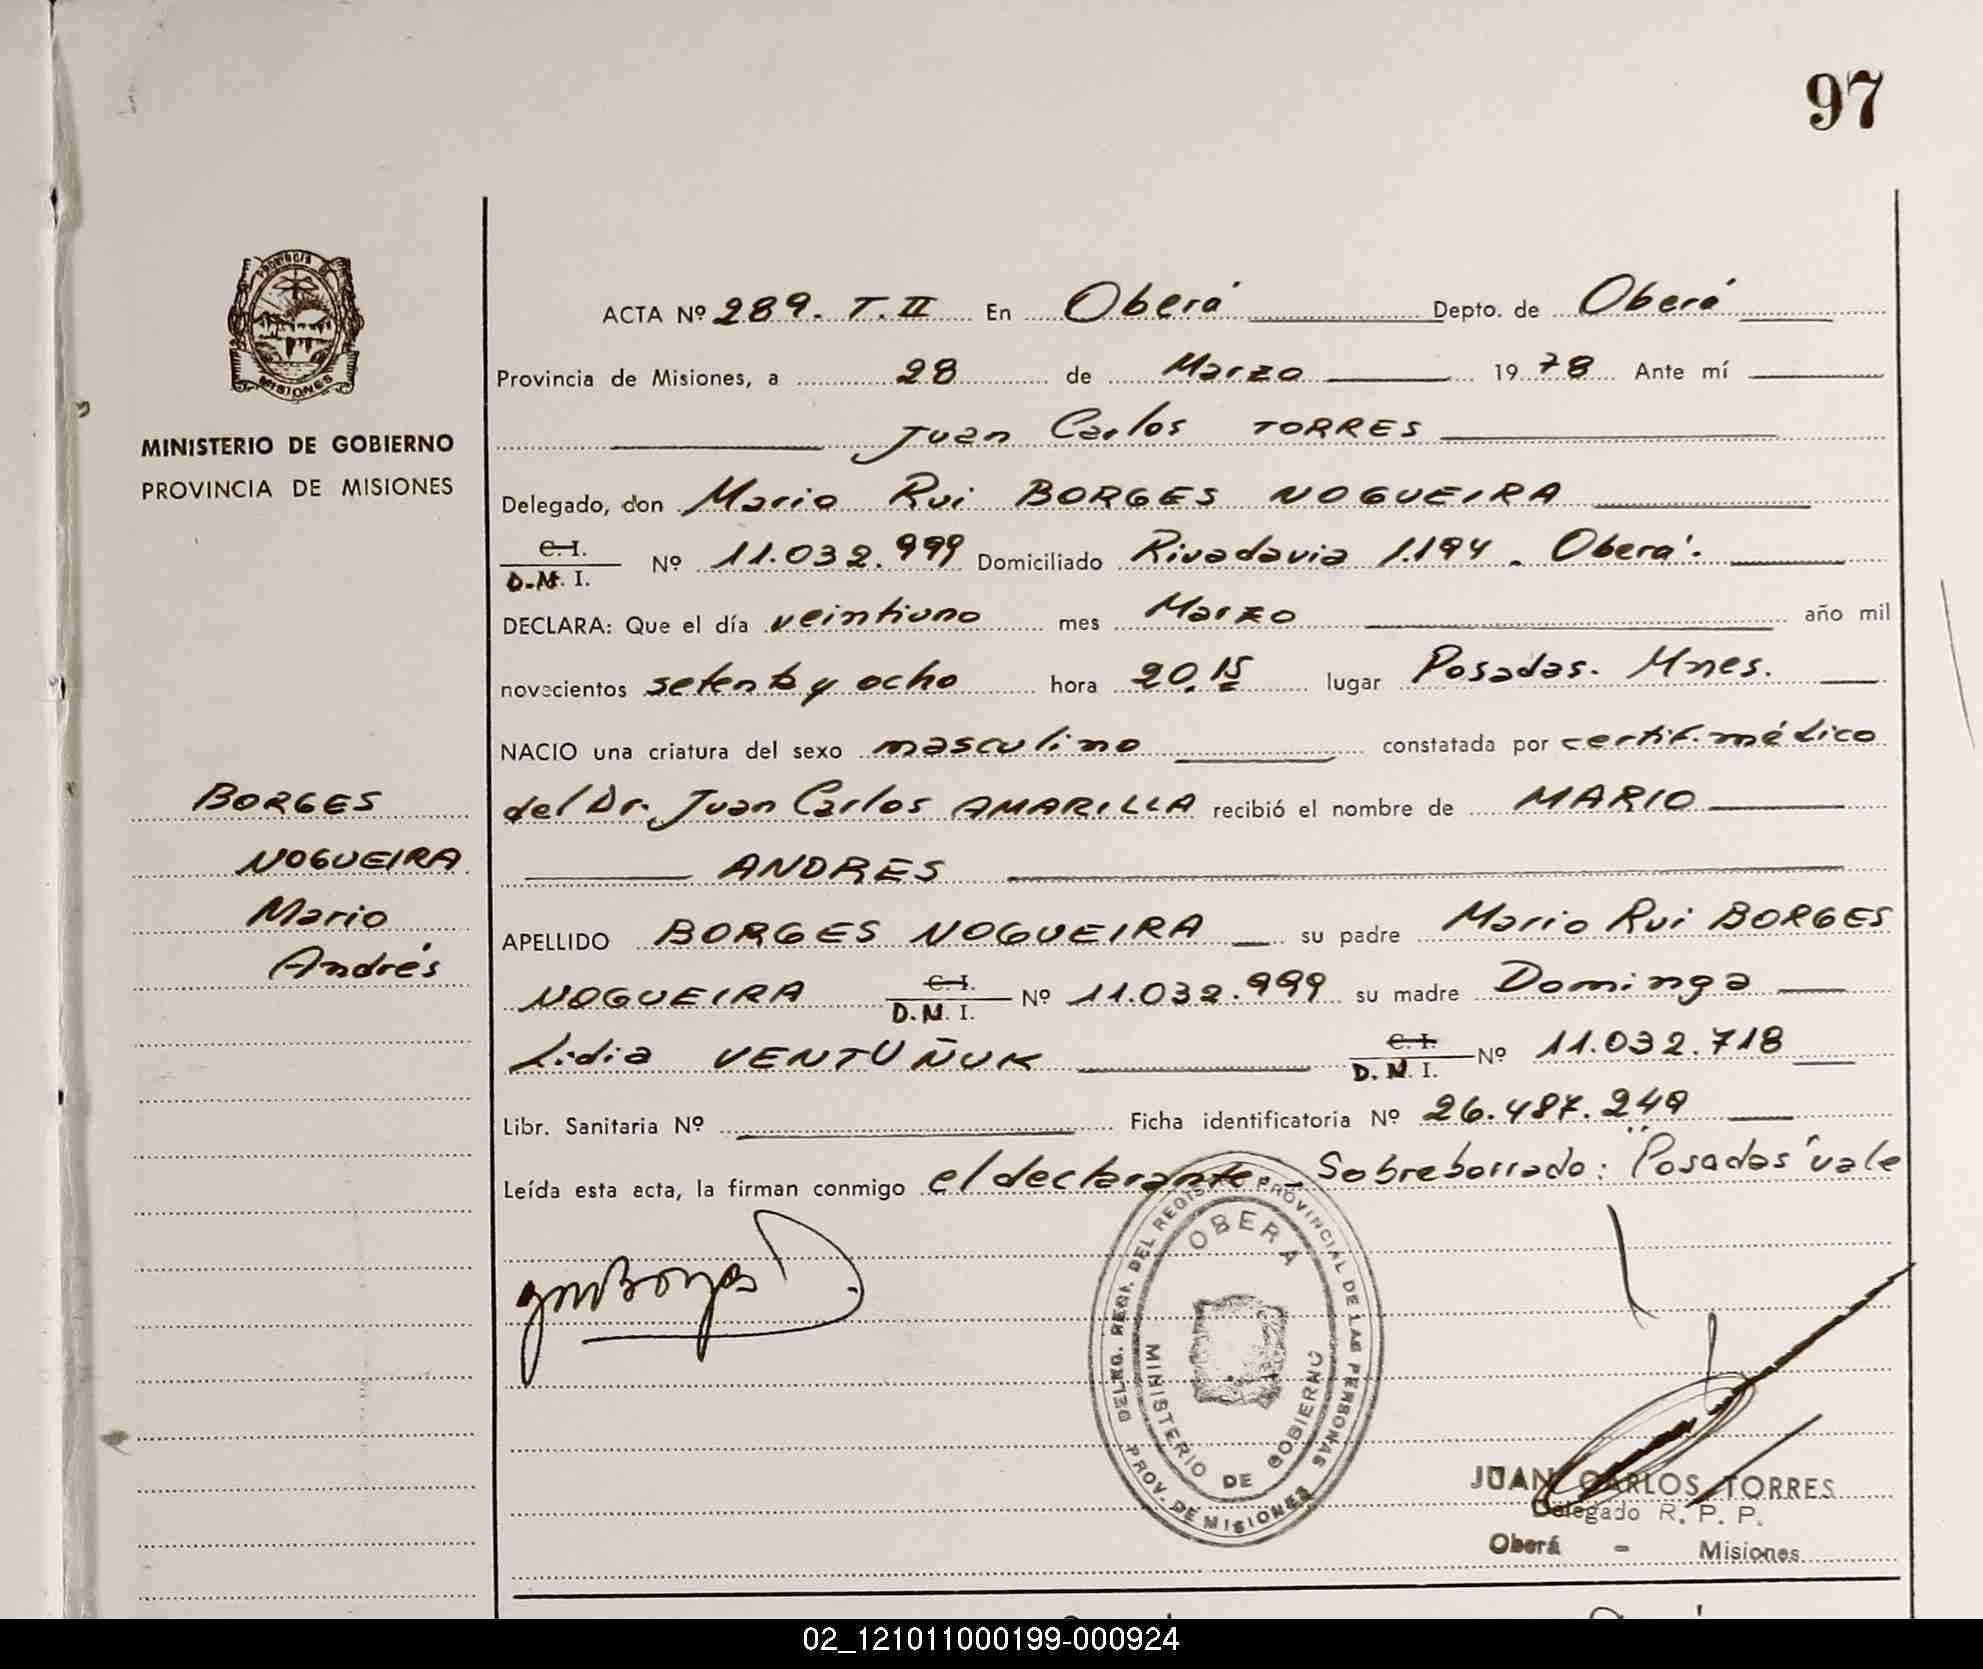 97
PROVINCIA DE
MISIONES
MINISTERIO DE GOBIERNO
PROVINCIA DE MISIONES
BORGES
NOGUEIRA
Mario
Andrés
ACTA Nº 289. T. II En Oberá Depto. de Oberá
Provincia de Misiones, a 28 de Marzo 1978 Ante mí
Juan Carlos TORRES
Delegado, don Mario Rui BORGES NOGUEIRA
C. I.
D. N. I. Nº 11.032.999 Domiciliado Rivadavia 1.194. Oberá.
DECLARA: Que el día veintiuno mes Marzo año mil
novecientos setenta y ocho hora 20.15 lugar Posadas. Mnes.
NACIO una criatura del sexo masculino constatada por certif. médico
del Dr. Juan Carlos AMARILLA recibió el nombre de MARIO
ANDRES
APELLIDO BORGES NOGUEIRA su padre Mario Rui BORGES
NOGUEIRA C. I. D. N. I. Nº 11.032.999 su madre Dominga
Lidia VENTUÑUK C. I. D. N. I. Nº 11.032.718
Libr. Sanitaria Nº Ficha identificatoria Nº 26.487.249
Leída esta acta, la firman conmigo el declarante. Sobreborrado: "Posadas" vale
DELEG. REGI. DEL REGISTRO PROVINCIAL DE LAS PERSONAS
OBERA
MINISTERIO DE GOBIERNO
PROV. DE MISIONES
JUAN CARLOS TORRES
Delegado R. P. P.
Oberá - Misiones
02_121011000199-000924